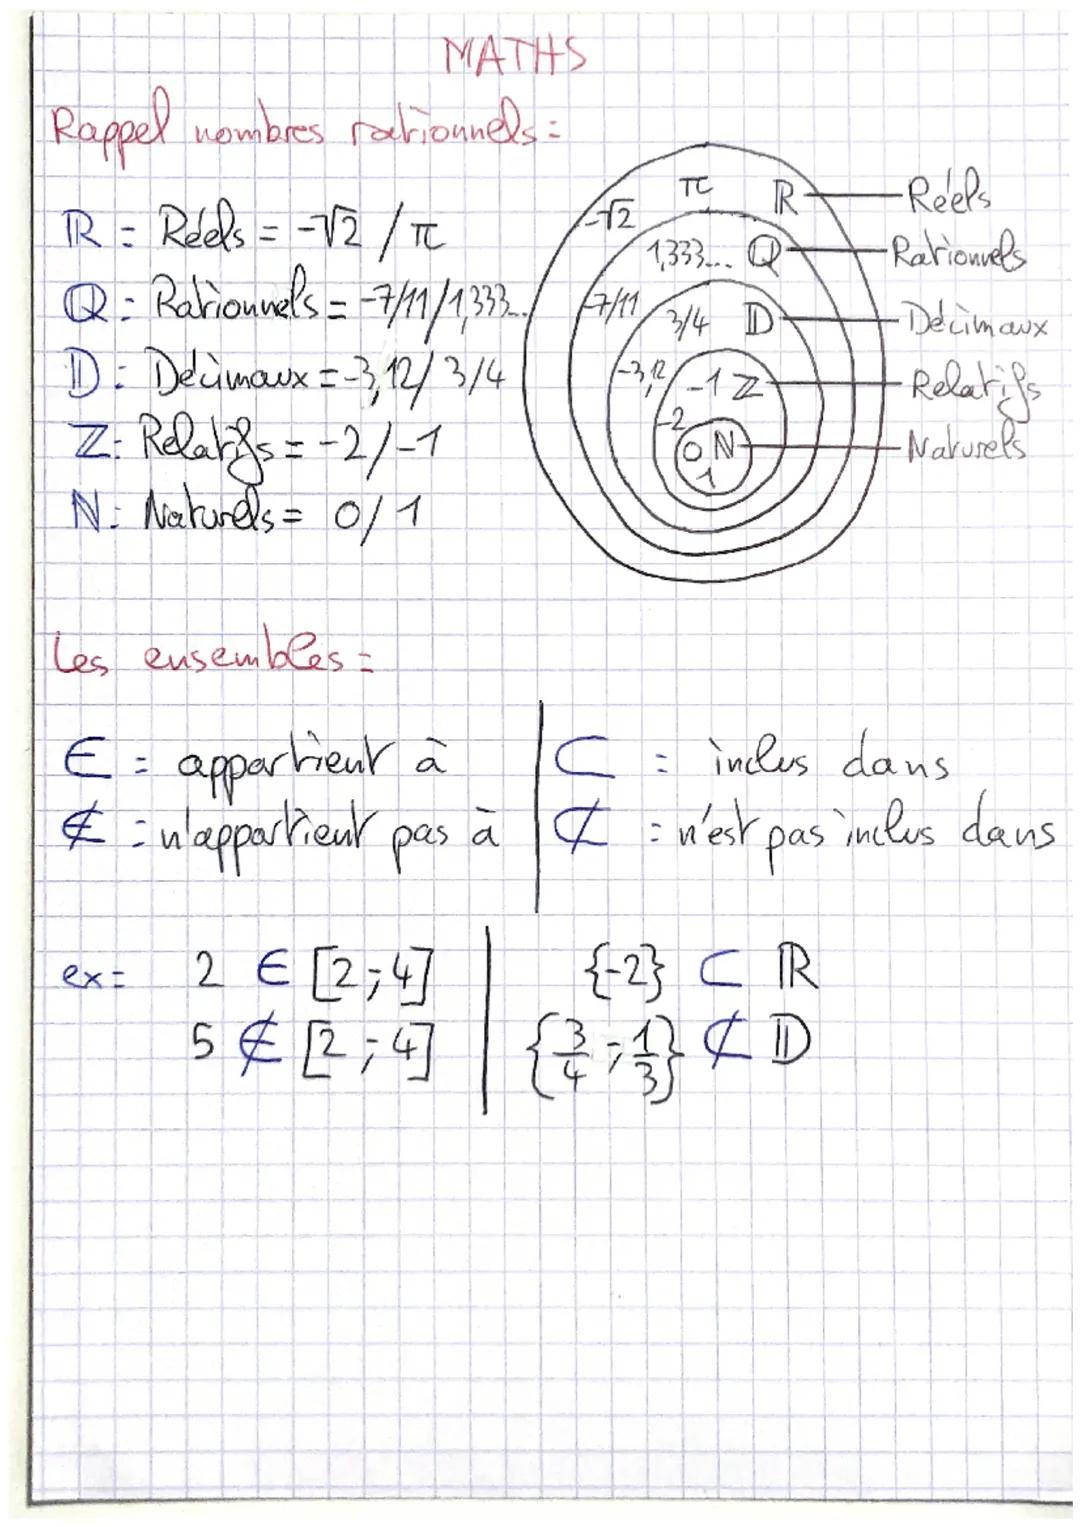 MATHS
Rappel nombres rationnels =
ℝ = Réels = -√2 / π
ℚ = Rationnels = -7/11/1,333...
𝔻 = Décimaux = -3,12/ 3/4
ℤ = Relatifs = -2/-1
ℕ = Naturels = 0/1
π ℝ Réels
-√2
1,333... ℚ Rationnels
-7/11 3/4 𝔻 Décimaux
-3,12 -1 ℤ Relatifs
-2
0 ℕ Naturels
1
Les ensembles =
∈ = appartient à
∉ = n'appartient pas à
⊂ = inclus dans
⊄ = n'est pas inclus dans
ex = 2 ∈ [2;4]
5 ∉ [2;4]
{-2} ⊂ ℝ
{3/4 ; 1/3} ⊄ 𝔻